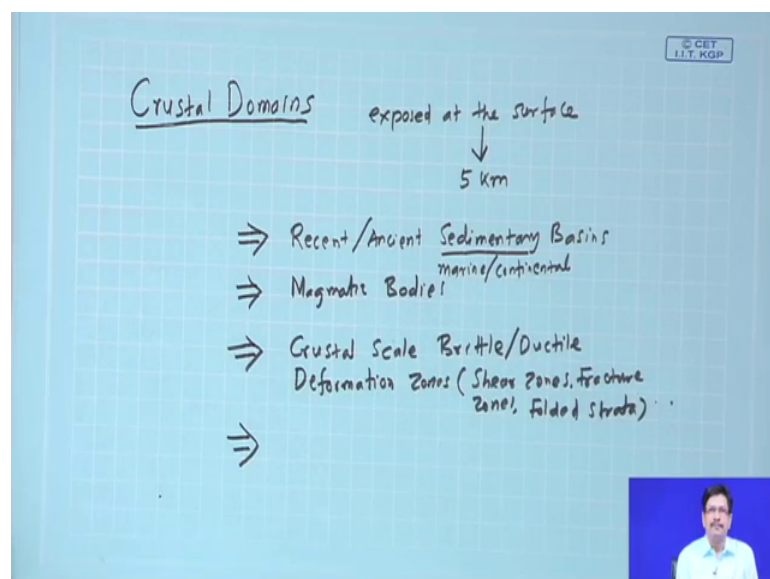 © CET
I.I.T. KGP
Crustal Domains exposed at the surface
5 Km
⇒ Recent/Ancient Sedimentary Basins
marine/continental
⇒ Magmatic Bodies
⇒ Crustal Scale Brittle/Ductile
Deformation Zones (Shear Zones, Fracture
Zones, Folded Strata) ..
⇒